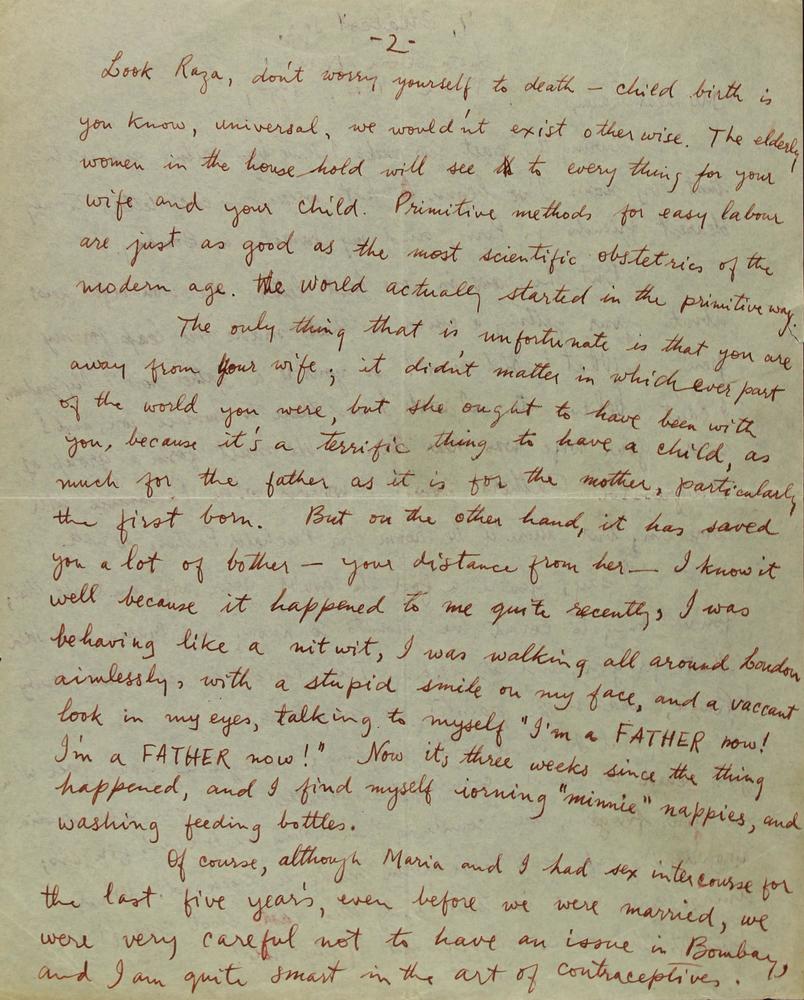 -2-
Look Raza, don't worry yourself to death – child birth is
you know, universal, we would'nt exist otherwise. The elderly
women in the house hold will see to every thing for your
wife and your child. Primitive methods for easy labour
are just as good as the most scientific obstetrics of the
modern age. The world actually started in the primitive way.
The only thing that is unfortunate is that you are
away from your wife; it didn't matter in which ever part
of the world you were, but she ought to have been with
you, because it's a terrific thing to have a child, as
much for the father as it is for the mother, particularly
the first born. But on the other hand, it has saved
you a lot of bother – your distance from her — I know it
well because it happened to me quite recently, I was
behaving like a nitwit, I was walking all around London
aimlessly, with a stupid smile on my face, and a vaccant
look in my eyes, talking to myself "I'm a FATHER now!
I'm a FATHER now!" Now its three weeks since the thing
happened, and I find myself iorning "minnie" nappies, and
washing feeding bottles.
Of course, although Maria and I had sex intercourse for
the last five year's, even before we were married, we
were very careful not to have an issue in Bombay,
and I am quite smart in the art of contraceptives.